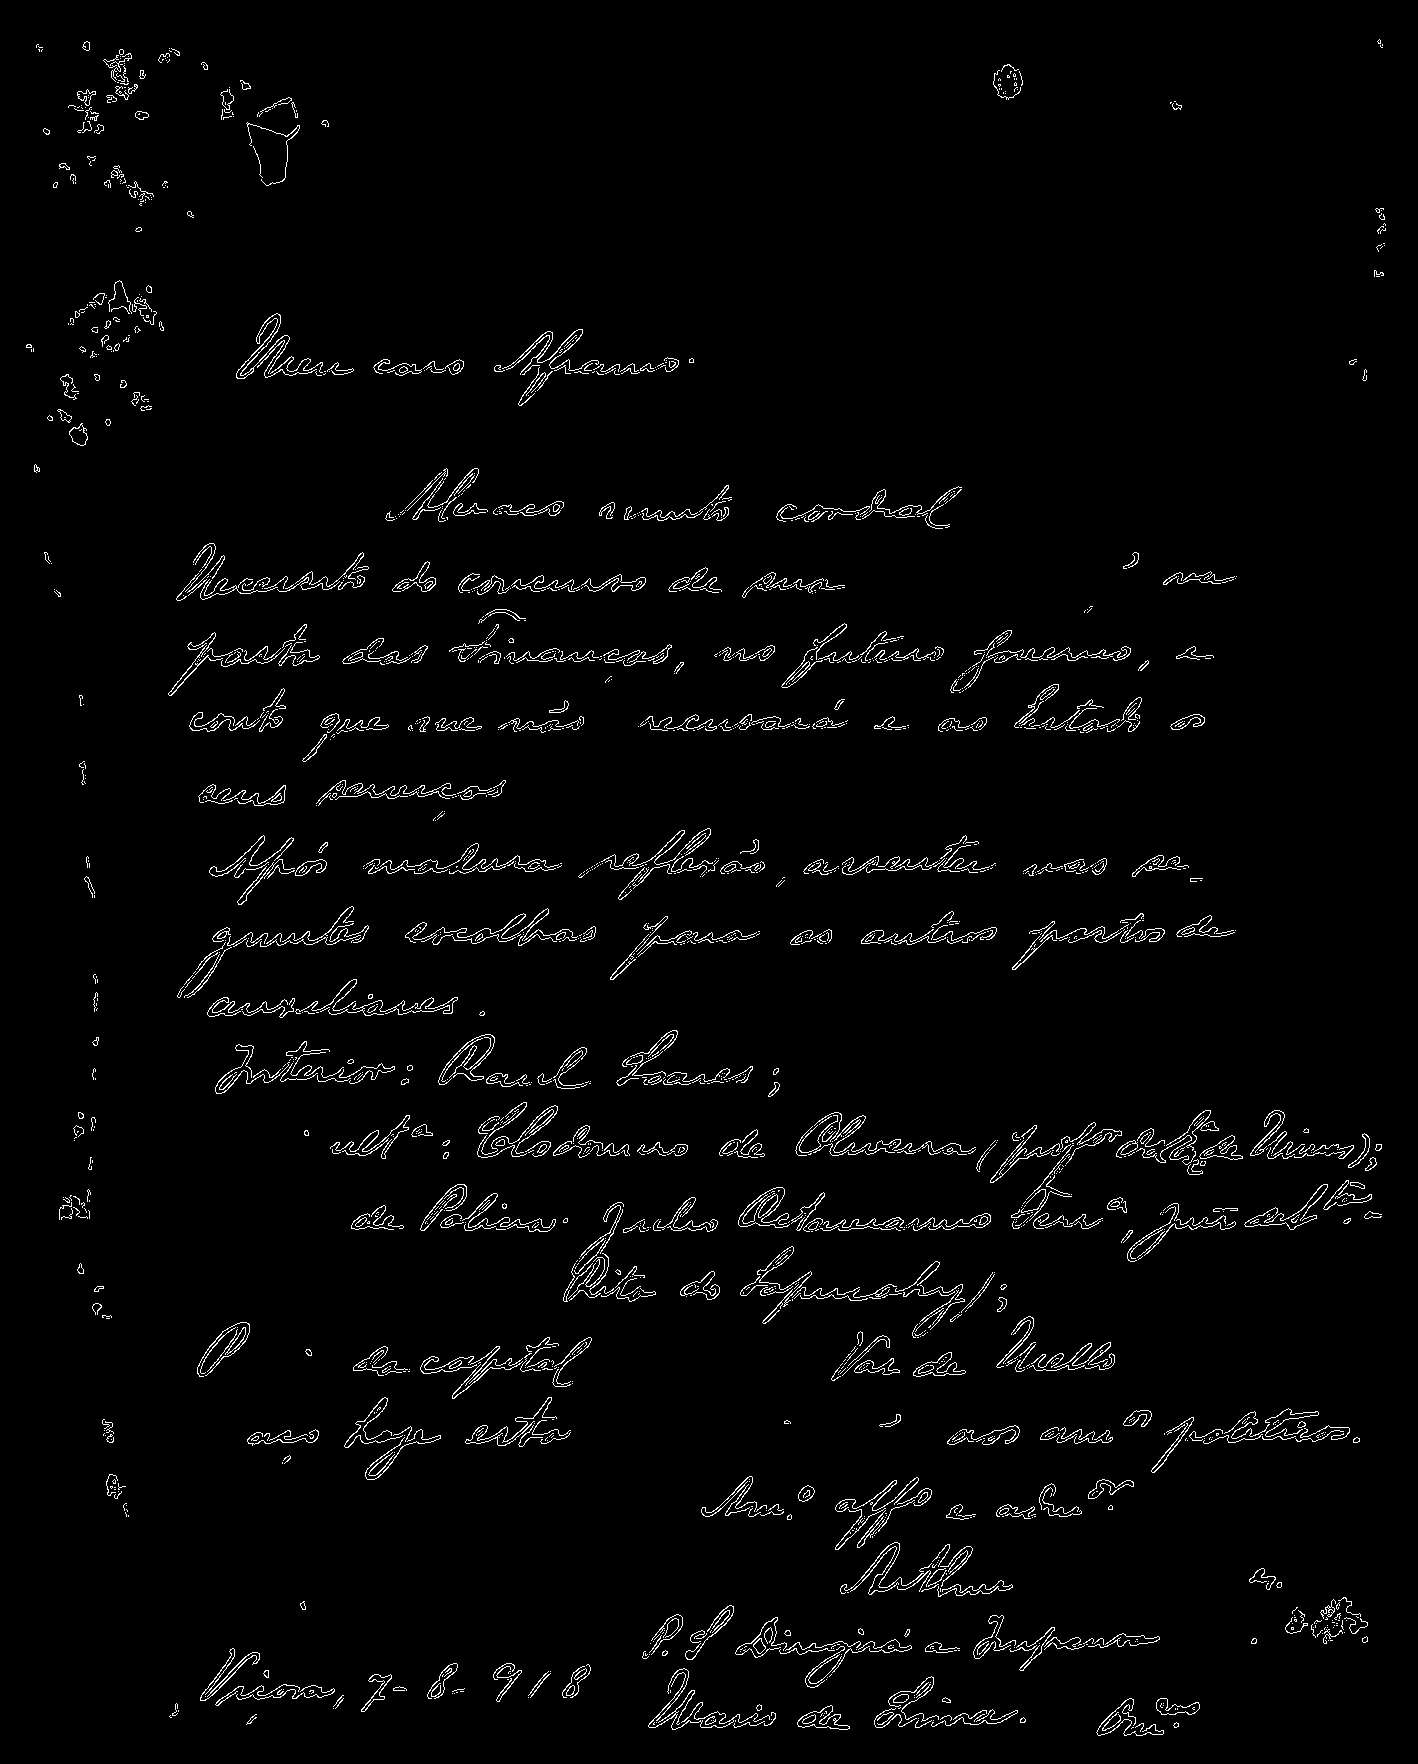 Meu caro Afranio.
Abraço muito cordial
Necessito do concurso de sua na
pasta das Finanças, no futuro Governo, e
conto que me não recusará e ao Estado os
seus serviços
Após madura reflexão, assentei nas se-
guintes escolhas para os outros postos de
auxiliares.
Interior: Raul Soares;
ultª: Clodomiro de Oliveira (profor da Eª de Minas);
de Policia. Julio Octaviano Ferrª, juiz de Sta.
Rita do Sapucahy);
P da capital Vaz de Mello
aço hoje esta aos amos politicos.
Am.º affº e admor.
Arthur
P.S Dirigirá a Imprensa
Viçosa, 7-8-918 Mario de Lima.